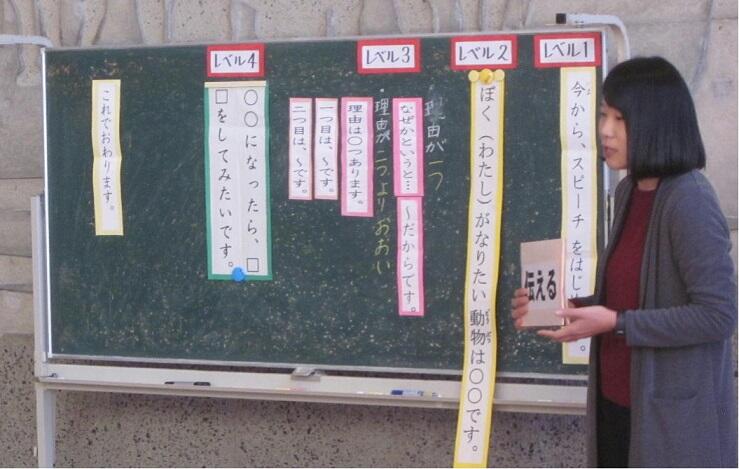 レベル1
今から、スピーチをはじめ。
伝える
レベル2
ぼく（わたし）がなりたい動物は〇〇です。
レベル3
理由が一つ
なぜかというと…
～だからです。
理由が二つよりおおい
理由は〇つあります。
一つ目は、～です。
二つ目は、～です。
レベル4
〇〇になったら、□
□をしてみたいです。
これでおわります。